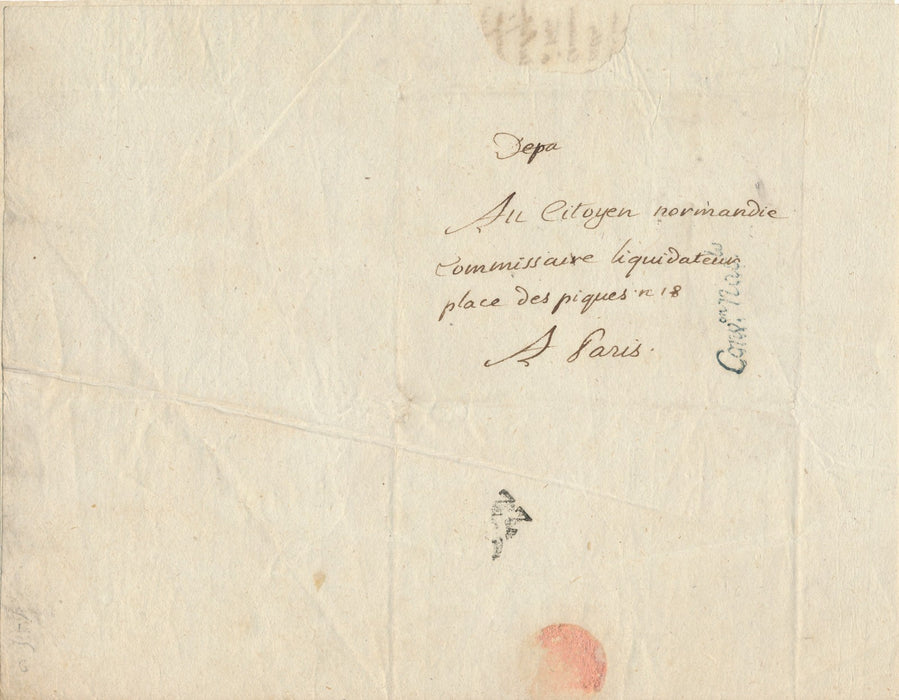 Depa
Au Citoyen normandie
Commissaire liquidateur
place des piques n 18
A Paris.
Conv.on Nale